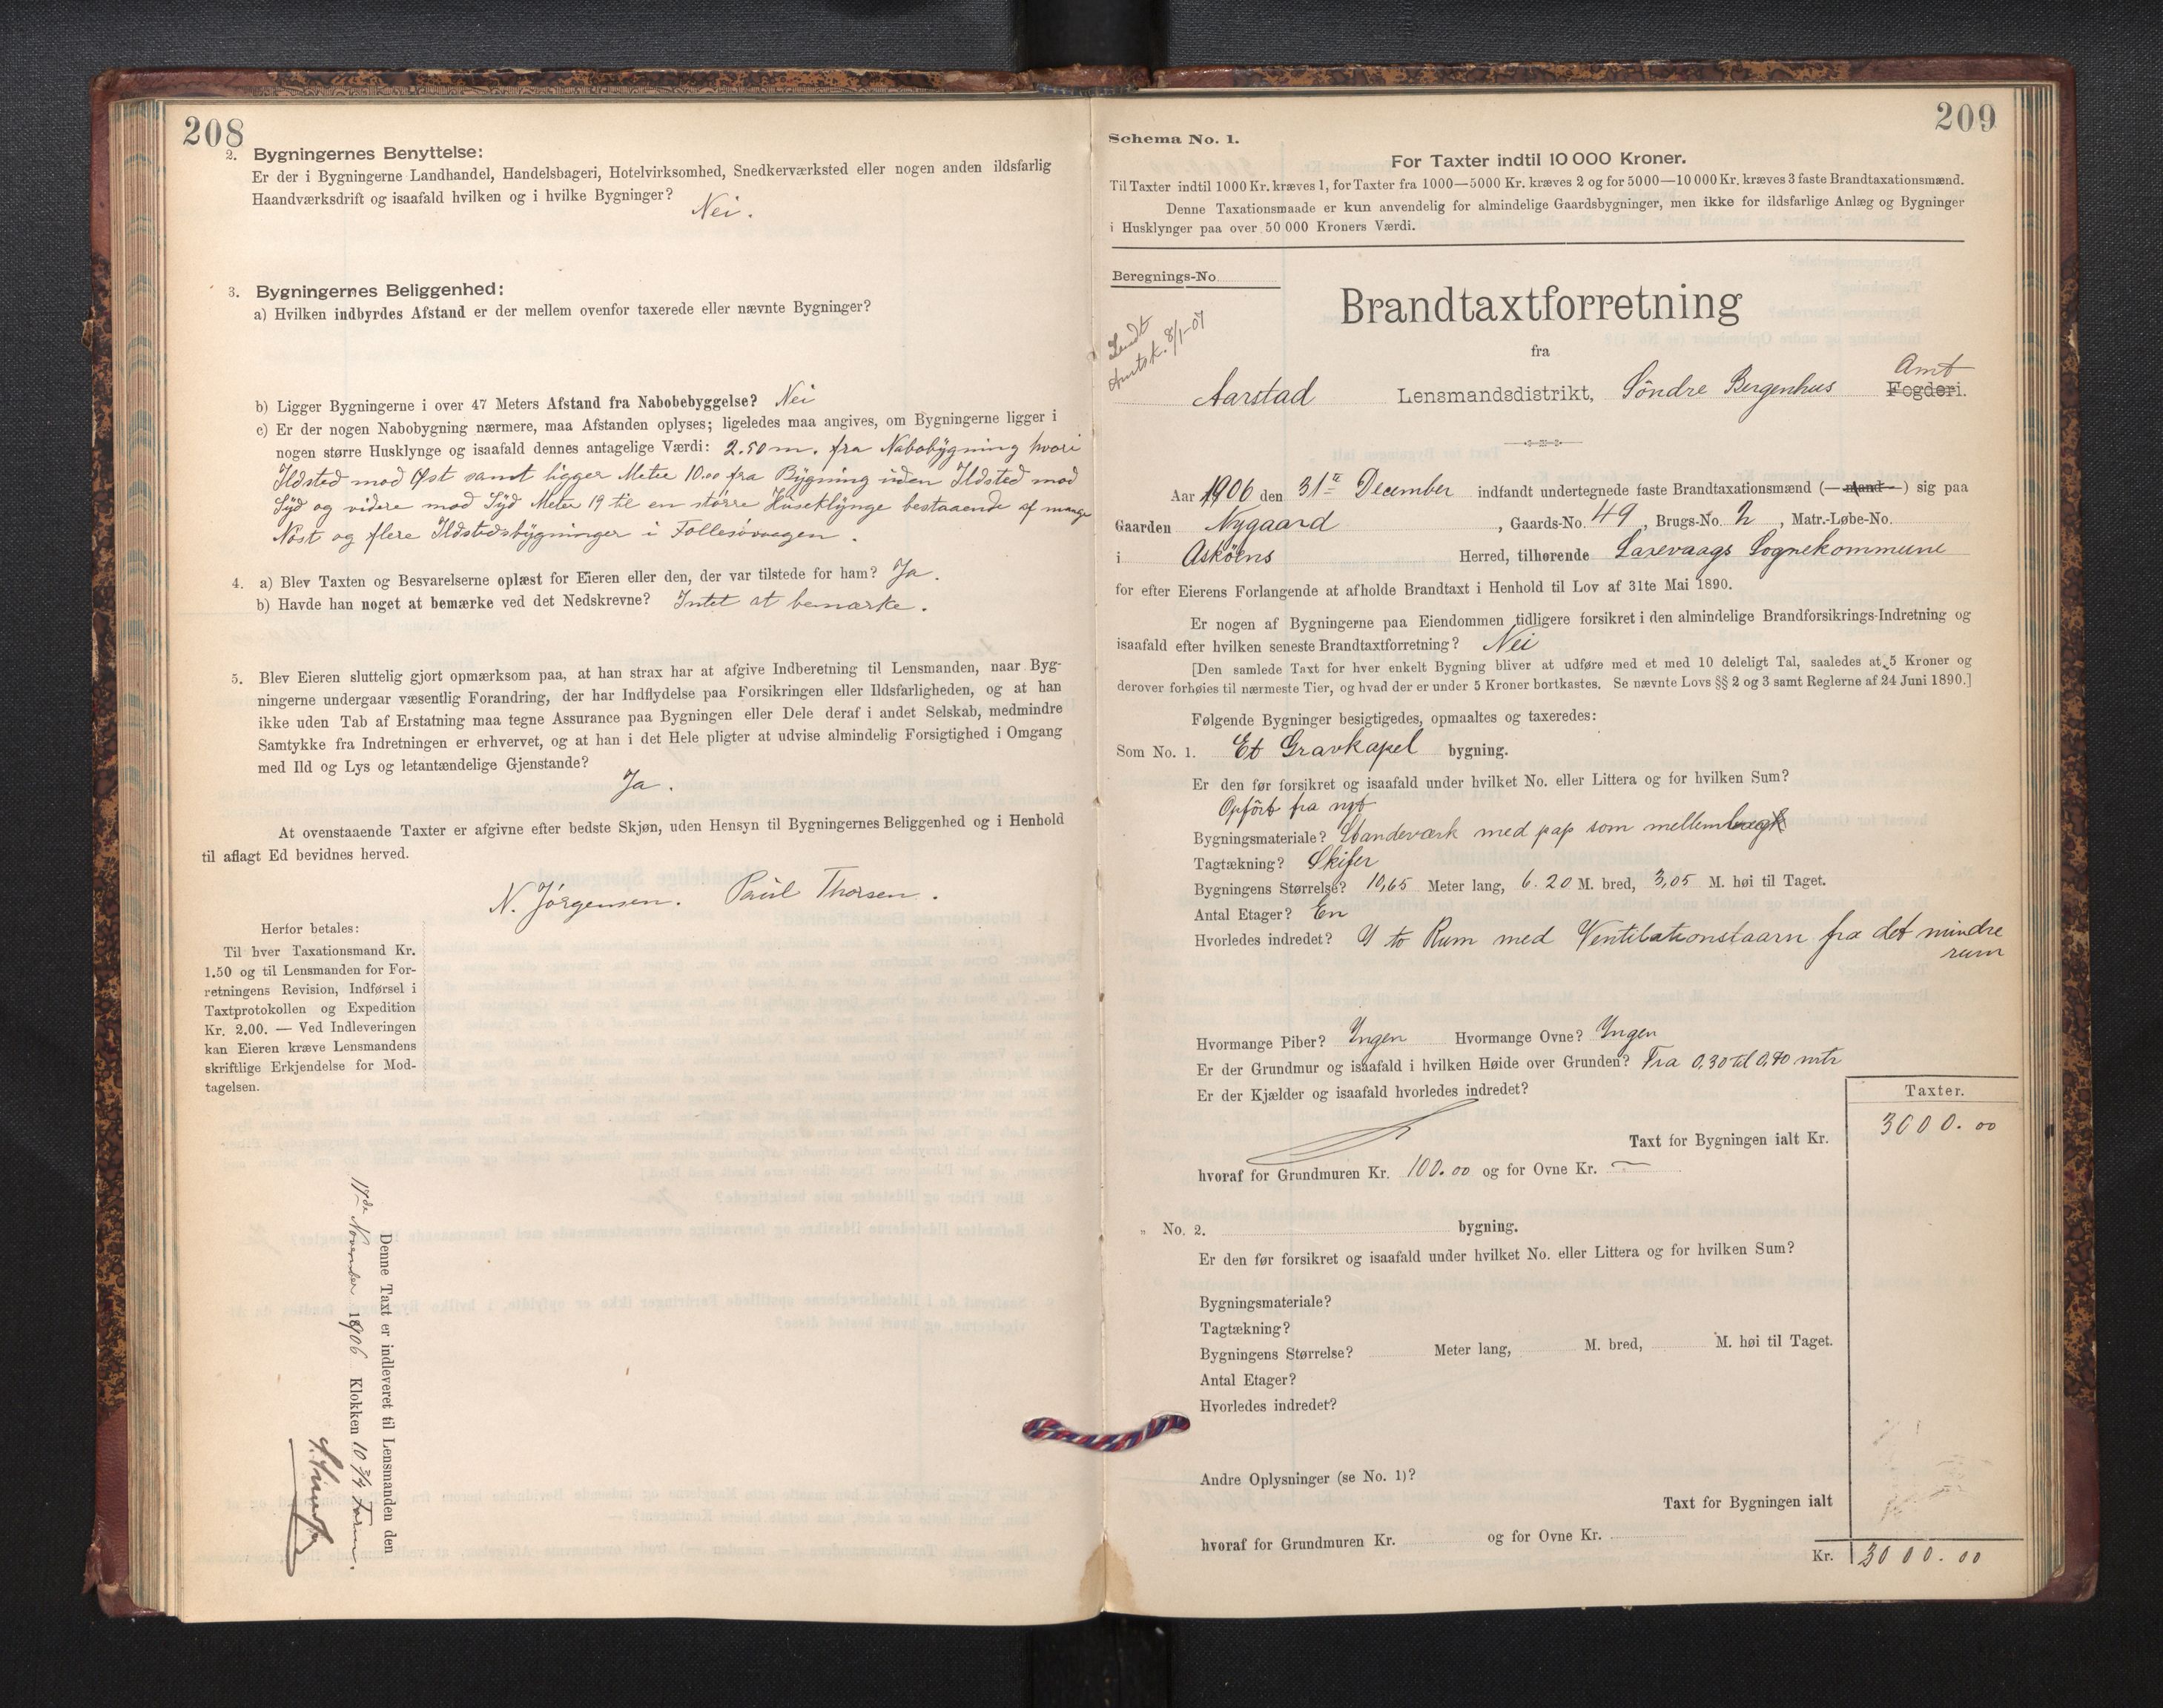 208
2. Bygningernes Benyttelse:
Er der i Bygningerne Landhandel, Handelsbageri, Hotelvirksomhed, Snedkerværksted eller nogen anden ildsfarlig
Haandværksdrift og isaafald hvilken og i hvilke Bygninger? Nei.
3. Bygningernes Beliggenhed:
a) Hvilken indbyrdes Afstand er der mellem ovenfor taxerede eller nævnte Bygninger?
b) Ligger Bygningerne i over 47 Meters Afstand fra Nabobebyggelse? Nei
c) Er der nogen Nabobygning nærmere, maa Afstanden oplyses; ligeledes maa angives, om Bygningerne ligger i
nogen større Husklynge og isaafald dennes antagelige Værdi: 2.50 m. fra Nabobygning hvori
Ildsted mod Øst samt ligger Meter 10.00 fra Bygning uden Ildsted mod
Syd og videre mod Syd Meter 19 til en større Huseklynge bestaaende af mange
Nøst og flere Ildstedsbygninger i Follesøvaagen.
4. a) Blev Taxten og Besvarelserne oplæst for Eieren eller den, der var tilstede for ham? Ja.
b) Havde han noget at bemærke ved det Nedskrevne? Intet at bemærke.
5. Blev Eieren sluttelig gjort opmærksom paa, at han strax har at afgive Indberetning til Lensmanden, naar Byg-
ningerne undergaar væsentlig Forandring, der har Indflydelse paa Forsikringen eller Ildsfarligheden, og at han
ikke uden Tab af Erstatning maa tegne Assurance paa Bygningen eller Dele deraf i andet Selskab, medmindre
Samtykke fra Indretningen er erhvervet, og at han i det Hele pligter at udvise almindelig Forsigtighed i Omgang
med Ild og Lys og letantændelige Gjenstande?
Ja.
At ovenstaaende Taxter er afgivne efter bedste Skjøn, uden Hensyn til Bygningernes Beliggenhed og i Henhold
til aflagt Ed bevidnes herved.
N. Jörgensen. Paul Thorsen.
Herfor betales:
Til hver Taxationsmand Kr.
1.50 og til Lensmanden for For-
retningens Revision, Indførsel i
Taxtprotokollen og Expedition
Kr. 2.00. — Ved Indleveringen
kan Eieren kræve Lensmandens
skriftlige Erkjendelse for Mod-
tagelsen.
Denne Taxt er indleveret til Lensmanden den
17de November 1906 Klokken 10 3/4 Form.
209
Schema No. 1.
For Taxter indtil 10 000 Kroner.
Til Taxter indtil 1000 Kr. kræves 1, for Taxter fra 1000—5000 Kr. kræves 2 og for 5000—10 000 Kr. kræves 3 faste Brandtaxationsmænd.
Denne Taxationsmaade er kun anvendelig for almindelige Gaardsbygninger, men ikke for ildsfarlige Anlæg og Bygninger
i Husklynger paa over 50 000 Kroners Værdi.
Beregnings-No.
Sendt
Amtsk. 8/1-07
Brandtaxtforretning
fra
Aarstad Lensmandsdistrikt, Söndre Bergenhus Amt Fogderi.
Aar 1906 den 31te December indfandt undertegnede faste Brandtaxationsmænd (— mand —) sig paa
Gaarden Nygaard, Gaards-No. 49, Brugs-No. 2, Matr.-Løbe-No.
i Asköens Herred, tilhørende Laxevaags Sognekommune
for efter Eierens Forlangende at afholde Brandtaxt i Henhold til Lov af 31te Mai 1890.
Er nogen af Bygningerne paa Eiendommen tidligere forsikret i den almindelige Brandforsikrings-Indretning og
isaafald efter hvilken seneste Brandtaxtforretning? Nei
[Den samlede Taxt for hver enkelt Bygning bliver at udføre med et med 10 deleligt Tal, saaledes at 5 Kroner og
derover forhøies til nærmeste Tier, og hvad der er under 5 Kroner bortkastes. Se nævnte Lovs §§ 2 og 3 samt Reglerne af 24 Juni 1890.]
Følgende Bygninger besigtigedes, opmaaltes og taxeredes:
Som No. 1. Et Gravkapel bygning.
Er den før forsikret og isaafald under hvilket No. eller Littera og for hvilken Sum?
Opfört fra nyt
Bygningsmateriale? Standeværk med pap som mellemlægk
Tagtækning? Skifer
Bygningens Størrelse? 10,65 Meter lang, 6.20 M. bred, 3,05 M. høi til Taget.
Antal Etager? En
Hvorledes indredet? I to Rum med Ventilationstaarn fra det mindre
rum
Hvormange Piber? Ingen Hvormange Ovne? Ingen
Er der Grundmur og isaafald i hvilken Høide over Grunden? Fra 0,30 til 0,70 mtr
Er der Kjælder og isaafald hvorledes indredet?
Taxter.
Taxt for Bygningen ialt Kr. 3000.00
hvoraf for Grundmuren Kr. 100.00 og for Ovne Kr. —
„ No. 2. bygning.
Er den før forsikret og isaafald under hvilket No. eller Littera og for hvilken Sum?
Bygningsmateriale?
Tagtækning?
Bygningens Størrelse? Meter lang, M. bred, M. høi til Taget.
Antal Etager?
Hvorledes indredet?
Andre Oplysninger (se No. 1)?
Taxt for Bygningen ialt
hvoraf for Grundmuren Kr. og for Ovne Kr.
Kr. 3000.00